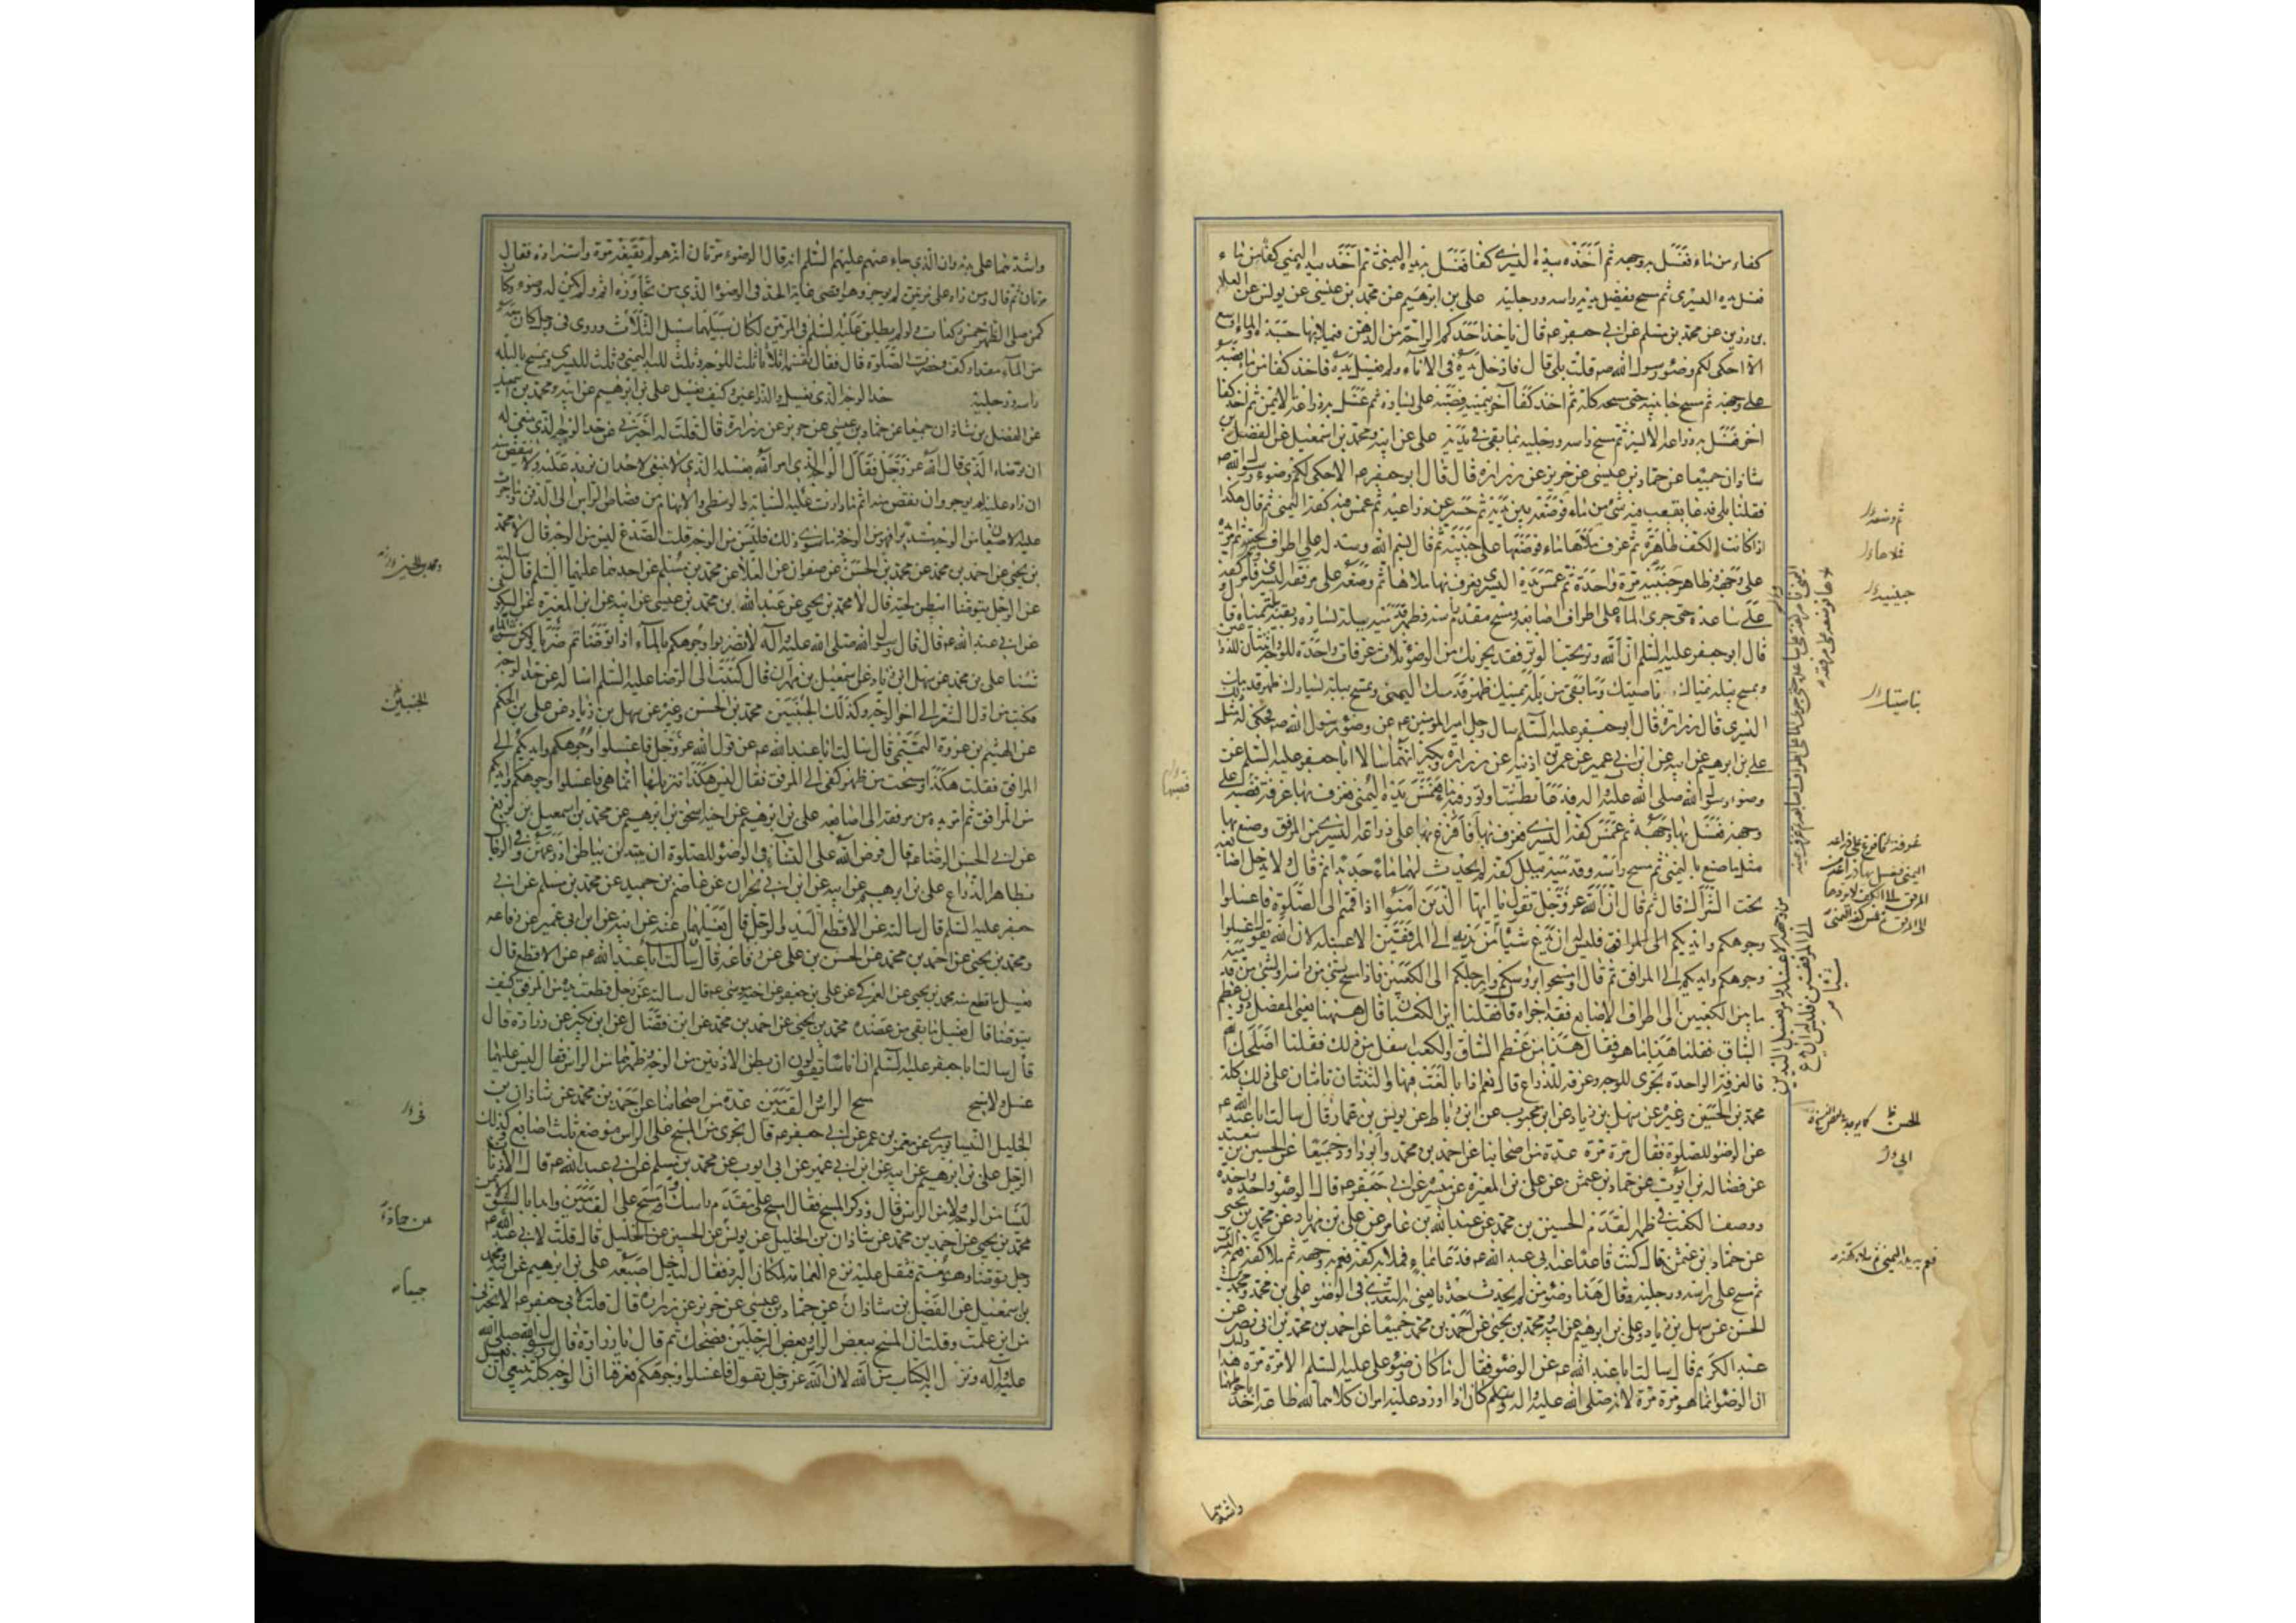 كفاء من ماء فغسل به وجهه ثم اخذه بيده اليسرى كفا فغسل به يده اليمنى ثم اخذ بيده اليمنى كفا من ماء
فغسل به يده اليسرى ثم مسح بفضل يديه راسه ورجليه علي بن ابرهيم عن محمد بن عيسى عن يونس عن العلا
بن رزين عن محمد بن مسلم عن ابي جعفر ع قال ياخذ احدكم الراحة من الدهن فيملا بها جسده والماء اوسع
الا احكي لكم وضوء رسول الله ص قلت بلى قال فادخل يده في الاناء ولم يغسل يده فاخذ كفا من ماء فصبه
على وجهه ثم مسح جانبيه حتى مسحه كله ثم اخذ كفا آخر بيمينه فصبه على يساره ثم غسل به ذراعه الايمن ثم اخذ كفا
آخر فغسل به ذراعه الايسر ثم مسح راسه ورجليه بما بقي في يديه علي عن ابيه ومحمد بن اسمعيل عن الفضل بن
شاذان جميعا عن حماد بن عيسى عن حريز عن زرارة قال قال ابو جعفر ع الا احكي لكم وضوء رسول الله ص
فقلنا بلى فدعا بقعب فيه شيء من ماء فوضعه بين يديه ثم حسر عن ذراعيه ثم غمس فيه كفه اليمنى ثم قال هكذا
اذا كانت الكف طاهرة ثم غرف ملاها ماء فوضعها على جبينه ثم قال بسم الله وسدله على اطراف لحيته ثم امر يده
على وجهه وظاهر جبينيه مرة واحدة ثم غمس يده اليسرى فغرف بها ملاها ثم وضعه على مرفقه اليسرى فامر كفه
على ساعده حتى جرى الماء على اطراف اصابعه ومسح مقدم راسه وظهر قدميه ببلة يساره وبقية بلة يمناه قال
قال ابو جعفر عليه السلم ان الله وتر يحب الوتر فقد يجزيك من الوضوء ثلاث غرفات واحدة للوجه واثنتان للذراعين
وتمسح ببلة يمناك ناصيتك وما بقي من بلة يمينك ظهر قدمك اليمنى وتمسح ببلة يسارك ظهر قدمك
اليسرى قال زرارة قال ابو جعفر عليه السلم سال رجل امير المومنين ع عن وضوء رسول الله ص فحكى له مثل
علي بن ابرهيم عن ابيه عن ابن ابي عمير عن عمر بن اذينه عن زرارة وبكير انهما سالا ابا جعفر عليه السلم عن
وضوء رسول الله صلى الله عليه واله فدعا بطست او تور فيه ماء فغمس يده اليمنى فغرف بها غرفة فصبها على
وجهه فغسل بها وجهه ثم غمس كفه اليسرى فغرف بها فافرغ بها على ذراعه اليسرى من المرفق وصنع بها
مثل ما صنع باليمنى ثم مسح راسه وقدميه ببلل كفه لم يحدث لهما ماء جديدا ثم قال ولا يدخل اصابعه
تحت الشراك قال ثم قال ان الله عز وجل يقول يا ايها الذين امنوا اذا قمتم الى الصلوة فاغسلوا
وجوهكم وايديكم الى المرافق فليس له ان يدع شيئا من يديه الى المرفقين الا غسله لان الله يقول اغسلوا
وجوهكم وايديكم الى المرافق ثم قال وامسحوا برؤسكم وارجلكم الى الكعبين فاذا مسح بشيء من راسه او بشيء من قدميه
ما بين الكعبين الى اطراف الاصابع فقد اجزاه فقلنا اين الكعبان قال ههنا يعني المفصل دون عظم
الساق فقلنا هذا ما هو فقال هذا من عظم الساق والكعب اسفل من ذلك فقلنا اصلحك الله
فالغرفة الواحدة تجزي للوجه وغرفة للذراع قال نعم اذا بالغت فيها والثنتان تاتيان على ذلك كله
محمد بن الحسين وغيره عن سهل بن زياد عن ابن محبوب عن ابن رباط عن يونس بن عمار قال سالت ابا عبد الله ع
عن الوضوء للصلوة فقال مرة مرة عدة من اصحابنا عن احمد بن محمد وابو داود جميعا عن الحسين بن سعيد
عن فضالة بن ايوب عن حماد بن عثمن عن علي بن المغيرة عن ميسرة عن ابي جعفر ع قال الوضوء واحدة واحدة
ووصف الكعب في ظهر القدم الحسين بن محمد عن عبد الله بن عامر عن علي بن مهزيار عن محمد بن يحيى
عن حماد بن عثمن قال كنت قاعدا عند ابي عبد الله ع فدعا بماء فملا به كفه فعم به وجهه ثم ملا كفه فعم به يده اليسرى
ثم مسح على راسه ورجليه وقال هذا وضوء من لم يحدث حدثا يعني به التعدي في الوضوء علي بن محمد ومحمد بن
الحسن عن سهل بن زياد وعلي بن ابرهيم عن ابيه ومحمد بن يحيى عن احمد بن محمد جميعا عن احمد بن محمد بن ابي نصر عن
عبد الكريم قال سالت ابا عبد الله ع عن الوضوء فقال ما كان وضوء علي عليه السلم الا مرة مرة هذا
ان الوضوء انما هو مرة مرة لانه صلى الله عليه واله وسلم كان اذا اورد عليه امران كلاهما لله طاعة اخذ
ثم وضعه
ملاها
جبينيه
ناصيتك
الحسن
فعم به يده اليمنى ثم ملا به كفه
واشدهما
واشدهما على بدنه وان الذي جاء عنهم عليهم السلم انه قال الوضوء مرتان انه هو لم يقنعه مرة واستزاده فقال
مرتان ثم قال ومن زاد على مرتين لم يوجر وهو اقصى غاية الحد في الوضوء الذي من تجاوزه اثم ولم يكن له وضوء وكان
كمن صلى الظهر خمس ركعات ولو لم يطلق عليه السلم في المرتين لكان سبيلهما سبيل الثلاث وروى في رجل كان معه
من الماء مقدار كف وحضرت الصلوة قال فقال يقسمه اثلاثا ثلث للوجه وثلث لليد اليمنى وثلث لليسرى ويمسح بالبله
راسه ورجليه حد الوجه الذي يغسل والذراعين وكيف يغسل علي بن ابرهيم عن ابيه ومحمد بن اسمعيل
عن الفضل بن شاذان جميعا عن حماد بن عيسى عن حريز عن زرارة قال قلت له اخبرني عن حد الوجه الذي ينبغي له
ان يوضاء الذي قال الله عز وجل فقال الوجه الذي امر الله بغسله الذي لا ينبغي لاحد ان يزيد عليه ولا ينقص منه
ان زاد عليه لم يوجر وان نقص منه اثم ما دارت عليه السبابة والوسطى والابهام من قصاص الراس الى الذقن وما جرت
عليه الاصبعان من الوجه مستديرا فهو من الوجه وما سوى ذلك فليس من الوجه قلت الصدغ ليس من الوجه قال لا محمد
بن يحيى عن احمد بن محمد عن محمد بن الحسن عن صفوان عن العلا عن محمد بن مسلم عن احدهما عليهما السلم قال سالته
عن الرجل يتوضا ايبطن لحيته قال لا محمد بن يحيى عن عبد الله بن محمد بن عيسى عن ابيه عن ابن المغيرة عن السكوني
عن ابي عبد الله ع قال قال رسول الله صلى الله عليه وآله لا تضربوا وجوهكم بالماء اذا توضاتم ضربا ولكن شنوا الماء
شنا علي بن محمد عن سهل ابن زياد عن اسمعيل بن مهران قال كتبت الى الرضا عليه السلم اساله عن حد الوجه
فكتب من اول الشعر الى آخر الوجه وكذلك الجبينين محمد بن الحسن وغيره عن سهل بن زياد عن علي بن الحكم
عن الهيثم بن عروة التميمي قال سالت ابا عبد الله ع عن قول الله عز وجل فاغسلوا وجوهكم وايديكم الى
المرافق فقلت هكذا ومسحت من ظهر كفي الى المرفق فقال ليس هكذا تنزيلها انما هي فاغسلوا وجوهكم وايديكم
من المرافق ثم امر يده من مرفقه الى اصابعه علي بن ابرهيم عن اخيه اسحق بن ابرهيم عن محمد بن اسمعيل بن بزيع
عن ابي الحسن الرضا ع قال فرض الله على النساء في الوضوء للصلوة ان يبتدئن بباطن اذرعهن وفي الرجال
بظاهر الذراع علي بن ابرهيم عن ابيه عن ابن ابي نجران عن عاصم بن حميد عن محمد بن مسلم عن ابي
جعفر عليه السلم قال سالته عن الاقطع اليد والرجل قال يغسلهما عنه عن ابيه عن ابن ابي عمير عن رفاعه
ومحمد بن يحيى عن احمد بن محمد عن الحسن بن علي عن رفاعة قال سالت ابا عبد الله ع عن الاقطع قال
يغسل ما قطع منه محمد بن يحيى عن العمركي عن علي بن جعفر عن اخيه موسى ع قال سالته عن رجل قطعت يده من المرفق كيف
يتوضا قال يغسل ما بقي من عضده محمد بن يحيى عن احمد بن محمد عن ابن فضال عن ابن بكير عن زرارة قال
قال سالت ابا جعفر عليه السلم ان اناسا يقولون ان بطن الاذنين من الوجه وظهرهما من الراس فقال ليس عليهما
غسل ولا مسح مسح الراس والقدمين عدة من اصحابنا عن احمد بن محمد عن شاذان بن
الخليل النيسابوري عن معمر بن عمر عن ابي جعفر ع قال يجزي من المسح على الراس موضع ثلث اصابع وكذلك
الرجل علي بن ابرهيم عن ابيه عن ابن ابي عمير عن ابي ايوب عن محمد بن مسلم عن ابي عبد الله ع قال الاذنان
ليستا من الوجه ولا من الراس قال وذكر المسح فقال امسح على مقدم راسك وامسح على القدمين وابدا بالشق الايمن
محمد بن يحيى عن احمد بن محمد عن شاذان بن الخليل عن يونس عن الحسين عن الخليل قال قلت لابي عبد الله ع
رجل توضا وهو معتم فثقل عليه نزع العمامة لمكان البرد فقال ليدخل اصبعه علي بن ابرهيم عن ابيه ومحمد
بن اسمعيل عن الفضل بن شاذان عن حماد بن عيسى عن حريز عن زرارة قال قلت لابي جعفر ع الا تخبرني
من اين علمت وقلت ان المسح ببعض الراس وبعض الرجلين فضحك ثم قال يا زرارة قال رسول الله صلى الله
عليه وآله ونزل به الكتاب من الله لان الله عز وجل يقول فاغسلوا وجوهكم فعرفنا ان الوجه كله ينبغي ان
الجبينين
جميعا